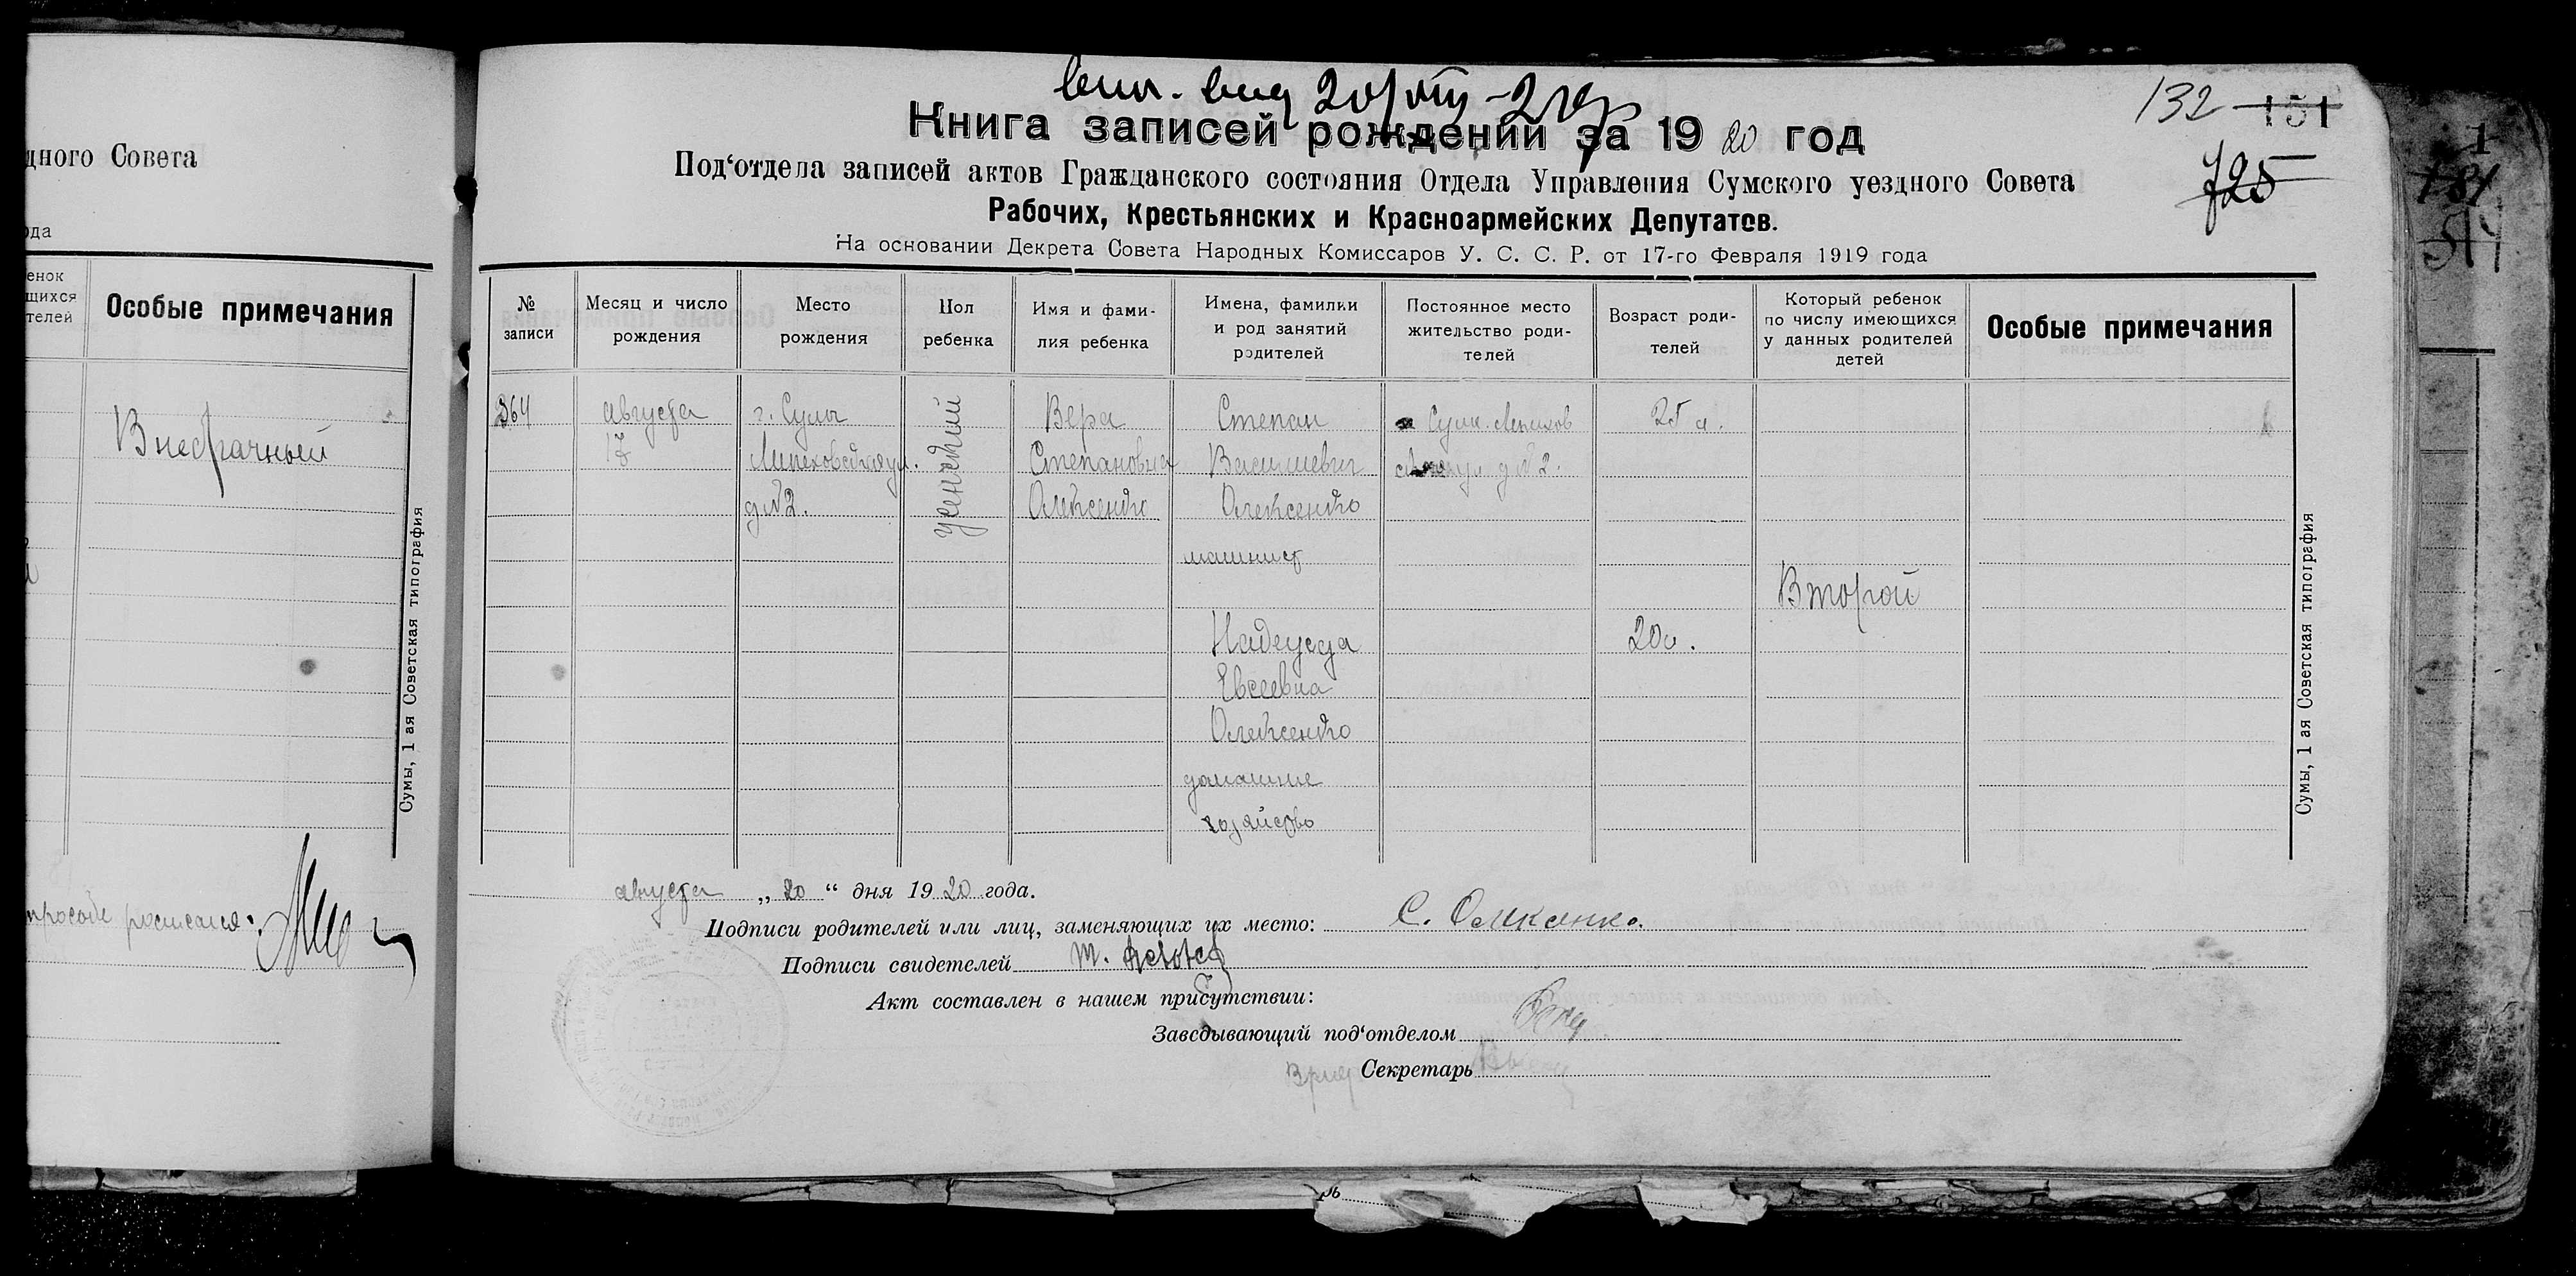 дного Совета
ода
енок
щихся
телей
Особые примечания
Внебрачный
Сумы, 1 ая Советская типография
росписался
20/VIII
132 151
725
Книга записей рождений за 1920 год
Под‘отдела записей актов Гражданского состояния Отдела Управления Сумского уездного Совета
Рабочих, Крестьянских и Красноармейских Депутатов.
На основании Декрета Совета Народных Комиссаров У. С. С. Р. от 17-го Февраля 1919 года
№ записи
Месяц и число рождения
Место рождения
Пол ребенка
Имя и фами-
лия ребенка
Имена, фамилии
и род занятий
родителей
Постоянное место
жительство роди-
телей
Возраст роди-
телей
Который ребенок
по числу имеющихся
у данных родителей
детей
Особые примечания
364
августа
17
г. Сумы
д №2.
женский
Вера
Степановна
Степан
Васильевич
Алексенко
машинист
ул д №2.
25 л.
Второй
Надежда
20 л.
Евсеевна
Алексенко
домашнее
хозяйство
Сумы, 1 ая Советская типография
августа „ 20 “ дня 1920 года.
Подписи родителей или лиц, заменяющих их место: С.
Подписи свидетелей
Акт составлен в нашем присутствии:
Заведывающий под‘отделом
Врид Секретарь